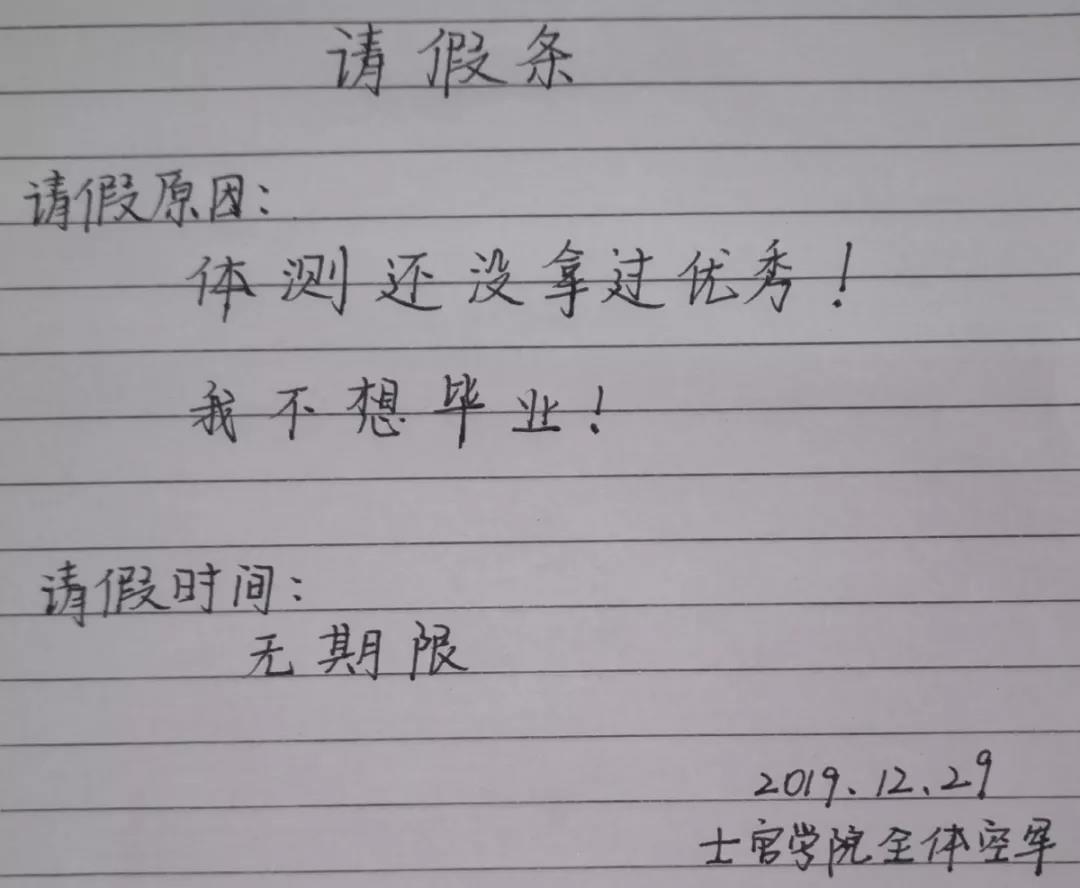 请假条
请假原因：
体测还没拿过优秀！
我不想毕业！
请假时间：
无期限
2019.12.29
士官学院全体空军